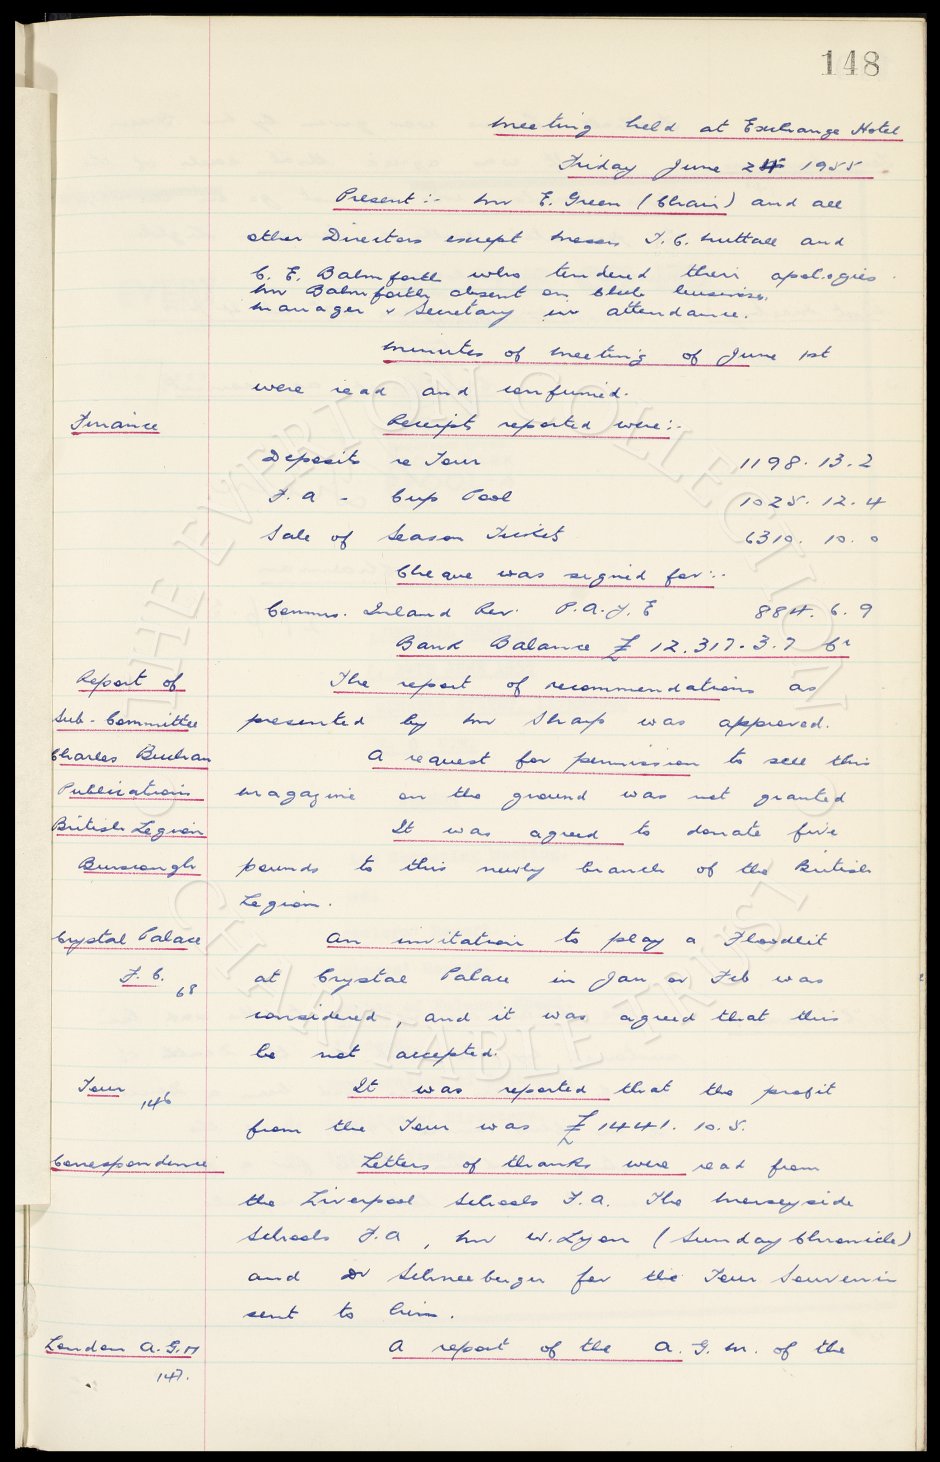 148
Meeting held at Exchange Hotel
Friday June 24 1955
Present:- Mr E. Green (Chair) and all
other Directors except Messrs T. C. Nuttall and
C. E. Balmforth who tendered their apologies
Mr Balmforth absent on Club business.
Manager & Secretary in attendance.
Minutes of Meeting of June 1st
were read and confirmed.
Finance Receipts reported were:-
Deposits re Tour 1198. 13. 2
F. A - Cup Pool 1025. 12. 4
Sale of Season Tickets 6310. 10. 0
Cheque was signed for:-
Comms. Inland Rev. P.A.Y.E 884. 6. 9
Bank Balance £ 12.317. 3. 7 Cr
Report of The report of recommendations as
Sub-Committee presented by Mr Sharp was approved.
Charles Buchan A request for permission to sell this
Publications magazine on the ground was not granted
British Legion It was agreed to donate five
Burscough pounds to this newly branch of the British
Legion.
Crystal Palace An invitation to play a Floodlit
F. C. 68 at Crystal Palace in Jan or Feb was
considered, and it was agreed that this
be not accepted.
Tour 146 It was reported that the profit
from the Tour was £ 1441. 10. 5.
Correspondence Letters of thanks were read from
the Liverpool Schools F.A. The Merseyside
Schools F.A, Mr W. Lyon (Sunday Chronicle)
and Dr Schneeberger for the Tour Souvenir
sent to him.
London A.G.M A report of the A. G. M. of the
147.
THE EVERTON COLLECTION
CHARITABLE TRUST